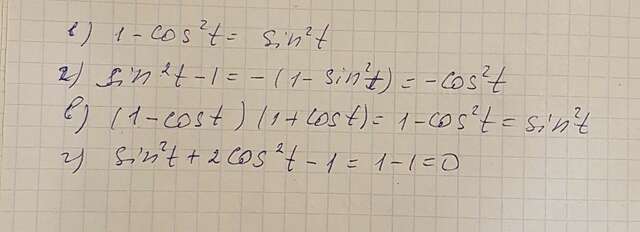 в) 1 - cos²t = sin²t
г) sin²t - 1 = -(1 - sin²t) = -cos²t
в) (1 - cost) (1 + cost) = 1 - cos²t = sin²t
г) sin²t + 2cos²t - 1 = 1 - 1 = 0